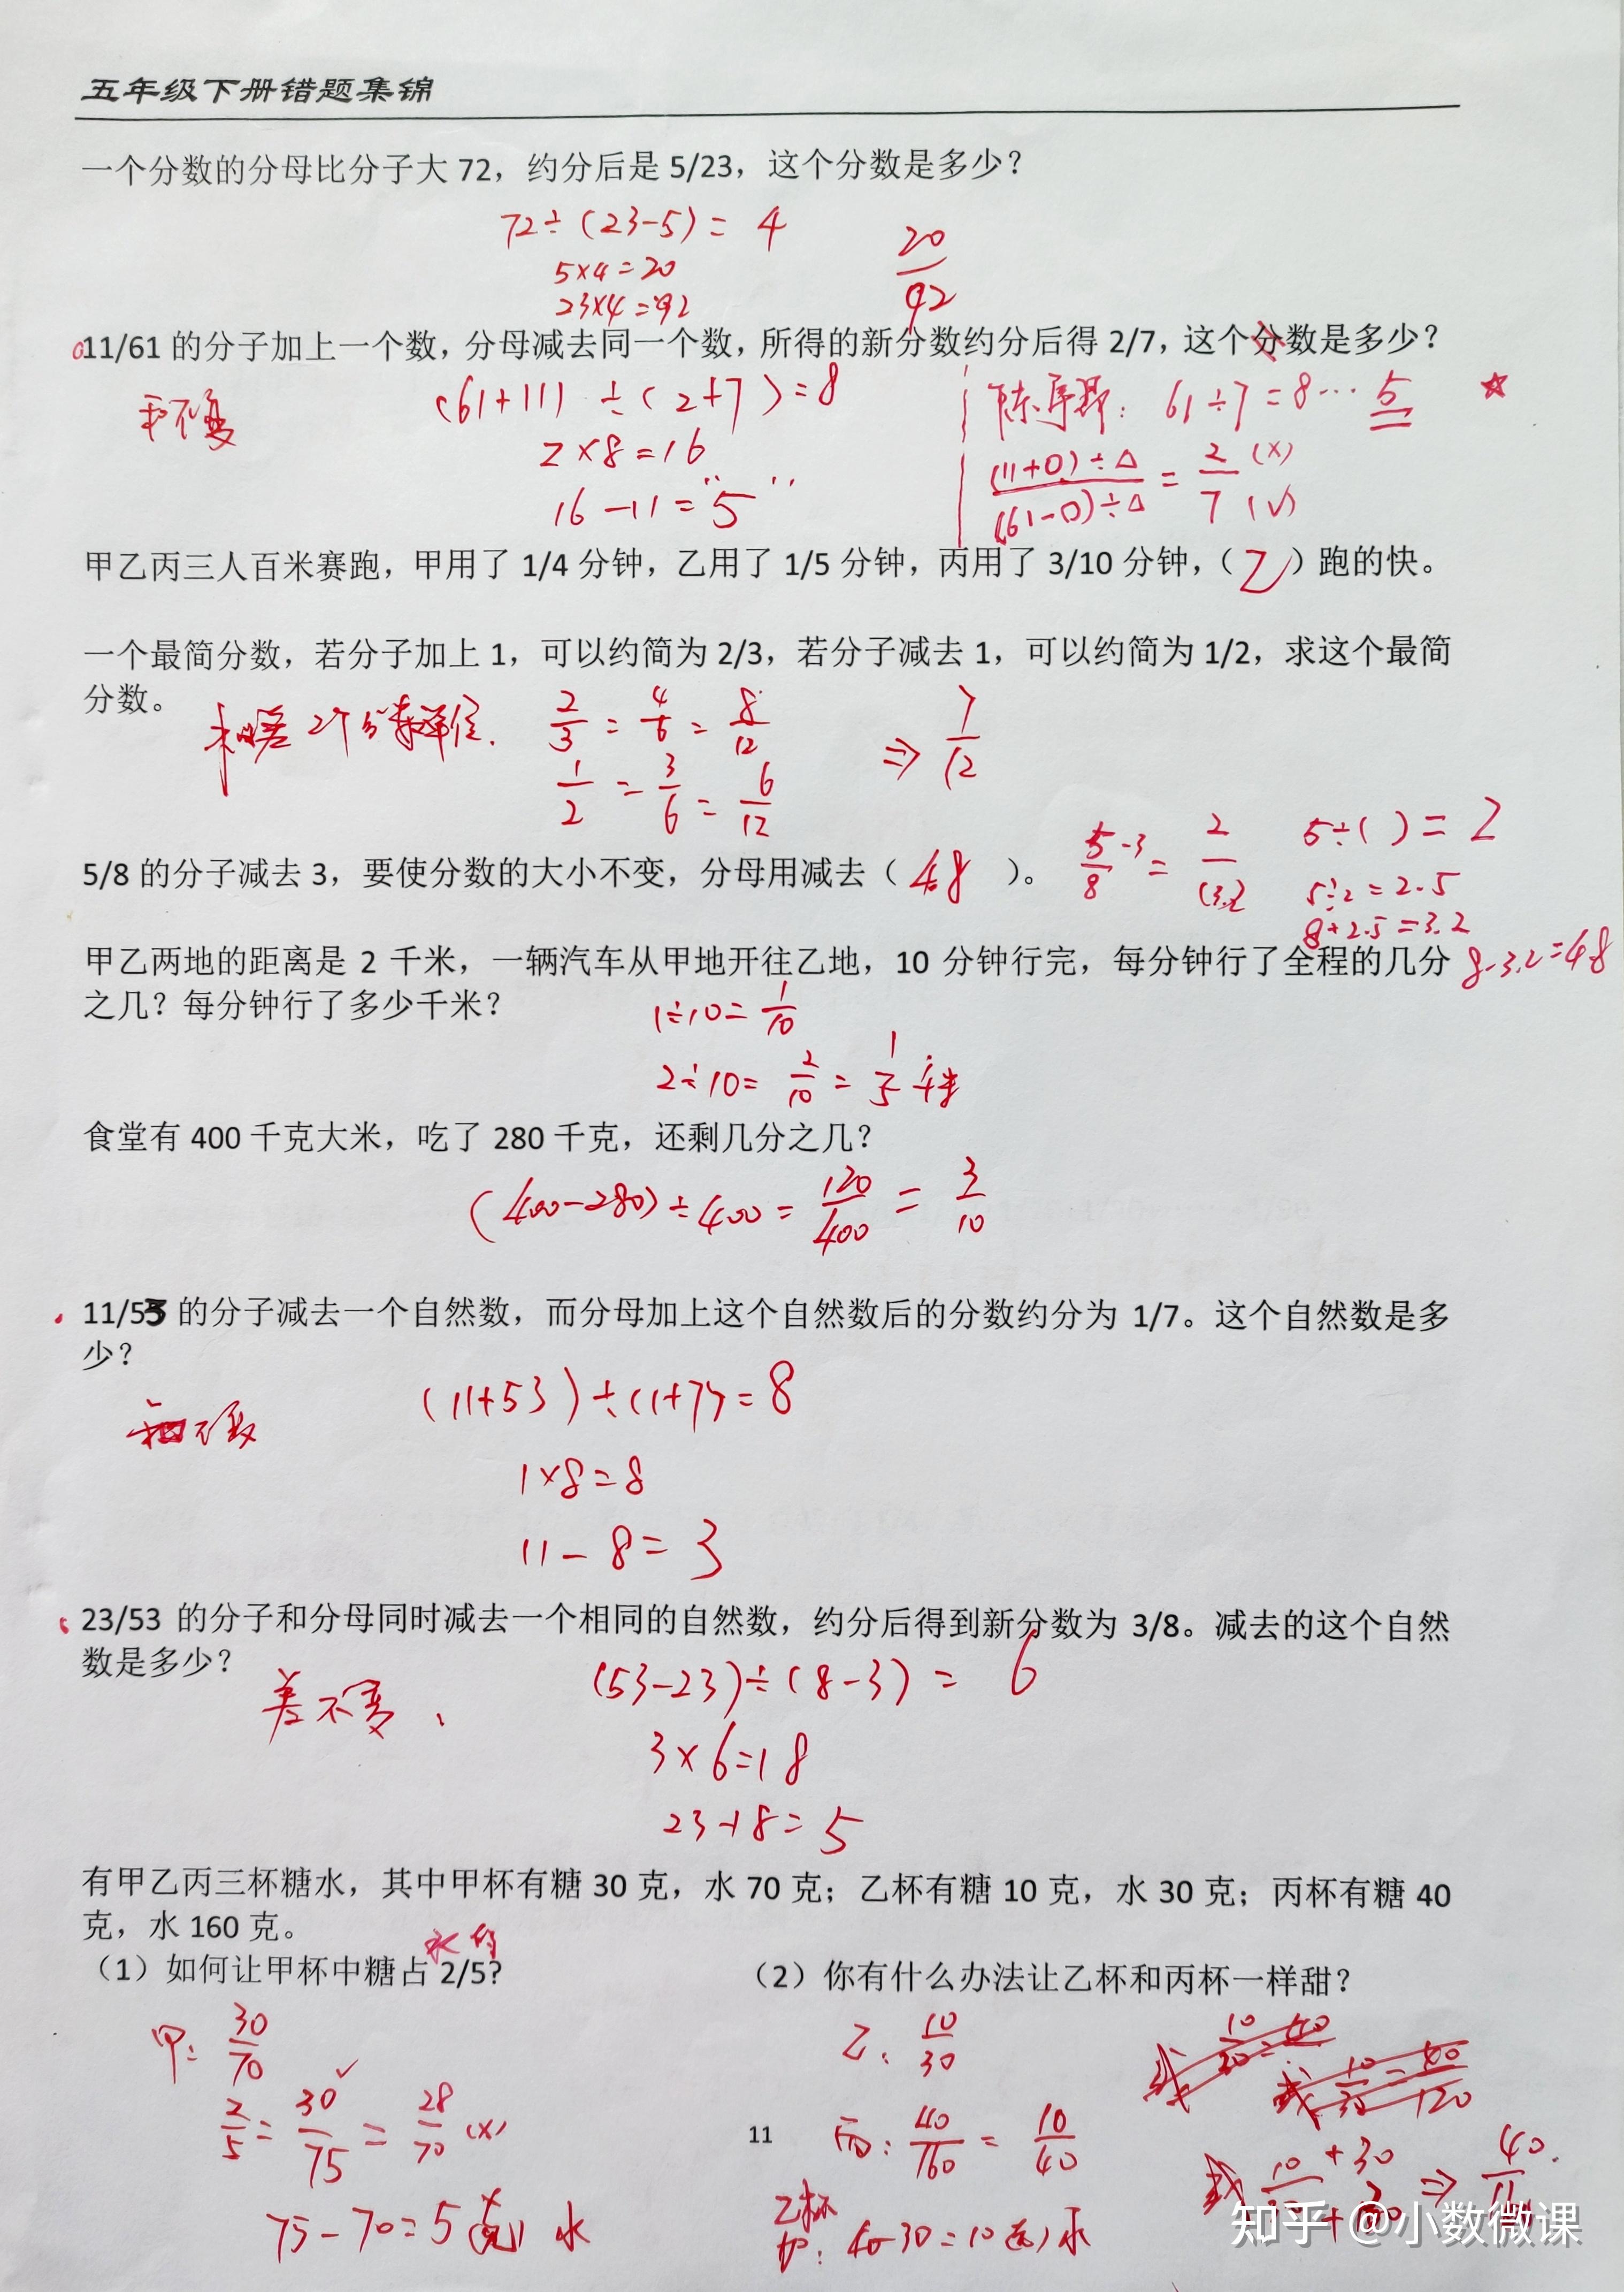 五年级下册错题集锦
一个分数的分母比分子大 72，约分后是 5/23，这个分数是多少？
72÷(23-5)= 4
5×4=20
23×4=92
20/92
11/61 的分子加上一个数，分母减去同一个数，所得的新分数约分后得 2/7，这个分数是多少？
和不变
(61+11) ÷(2+7)=8
2×8=16
16-11="5"
61÷7=8…5
(11+□)÷△/(61-□)÷△ = 2/7 (×) (√)
甲乙丙三人百米赛跑，甲用了 1/4 分钟，乙用了 1/5 分钟，丙用了 3/10 分钟，（乙）跑的快。
一个最简分数，若分子加上 1，可以约简为 2/3，若分子减去 1，可以约简为 1/2，求这个最简
分数。
2/3 = 4/6 = 8/12
1/2 = 3/6 = 6/12
⇒ 7/12
5/8 的分子减去 3，要使分数的大小不变，分母用减去（ 4.8 ）。
5-3/8 = 2/(3.2)
5÷( )= 2
5÷2=2.5
8÷2.5=3.2
8-3.2=4.8
甲乙两地的距离是 2 千米，一辆汽车从甲地开往乙地，10 分钟行完，每分钟行了全程的几分
之几？每分钟行了多少千米？
1÷10= 1/10
2÷10= 2/10 = 1/5 千米
食堂有 400 千克大米，吃了 280 千克，还剩几分之几？
(400-280)÷400= 120/400 = 3/10
11/53 的分子减去一个自然数，而分母加上这个自然数后的分数约分为 1/7。这个自然数是多
少？
和不变
(11+53)÷(1+7)=8
1×8=8
11-8= 3
23/53 的分子和分母同时减去一个相同的自然数，约分后得到新分数为 3/8。减去的这个自然
数是多少？
差不变、
(53-23)÷(8-3)= 6
3×6=18
23-18= 5
有甲乙丙三杯糖水，其中甲杯有糖 30 克，水 70 克；乙杯有糖 10 克，水 30 克；丙杯有糖 40
克，水 160 克。
水的
（1）如何让甲杯中糖占 2/5?
（2）你有什么办法让乙杯和丙杯一样甜？
甲: 30/70
2/5 = 30/75 = 28/70 (×)
75-70=5(克) 水
乙: 10/30
丙: 40/160 = 10/40
乙杯
加: 40-30=10(克) 水
11
知乎 @小数微课